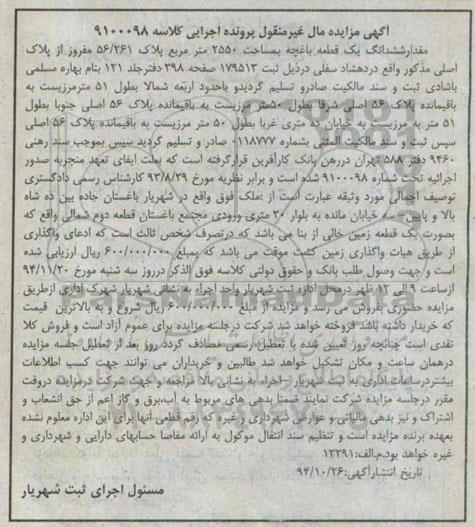 آگهی مزایده مال غیرمنقول پرونده اجرایی کلاسه ۹۱۰۰۰۹۸
مقدار ششدانگ یک قطعه باغچه بمساحت ۲۵۵۰ متر مربع پلاک ۵۶/۲۶۱ مفروز از پلاک
اصلی مذکور واقع در دهشاد سفلی در ذیل ثبت ۱۷۹۵۱۳ صفحه ۳۹۸ دفتر جلد ۱۲۱ بنام بهاره مسلمی
باشادی ثبت و سند مالکیت صادرو تسلیم گردیدو باحدود اربعه شمالا بطول ۵۱ مترمرزیست به
باقیمانده پلاک ۵۶ اصلی شرقا بطول ۵۰متر مرزیست به باقیمانده پلاک ۵۶ اصلی جنوبا بطول
۵۱ متر به مرزیست به خیابان ده متری غربا بطول ۵۰ متر مرزیست به باقیمانده پلاک ۵۶ اصلی
سپس ثبت و سند مالکیت المثنی بشماره ۱۱۸۷۷۷ صادر و تسلیم گردید سپس بموجب سند رهنی
۹۴۶۰ دفتر ۵۸۸ تهران دررهن بانک کارآفرین قرارگرفته است که بعلت ایفای تعهد منجربه صدور
اجرائیه تحت شماره ۹۱۰۰۰۹۸ شده است و برابر نظریه مورخ ۹۳/۸/۲۹ کارشناس رسمی دادگستری
توصیف اجمالی مورد وثیقه عبارت است از :ملک فوق واقع در شهریار باغستان جاده بین ده شاه
بالا و پایین - سه خیابان مانده به بلوار ۲۰ متری ورودی مجتمع باغستان قطعه دوم شمالی واقع که
بصورت یک قطعه زمین خالی از بنا می باشد که درتصرف شخص ثالث است که ادعای واگذاری
از طریق هیات واگذاری زمین کشت موقت می باشد که بمبلغ ۶۰۰/۰۰۰/۰۰۰ ریال ارزیابی شده
است و جهت وصول طلب بانک و حقوق دولتی کلاسه فوق الذکر درروز سه شنبه مورخ ۹۴/۱۱/۲۰
ازساعت ۹ الی ۱۲ ظهر درمحل اداره ثبت شهریار واحد اجراء به نشانی شهریار شهرک اداری ازطریق
مزایده حضوری بفروش می رسد و مزایده از مبلغ ۶۰۰/۰۰۰/۰۰۰ ریال شروع و به بالاترین قیمت
که خریدار داشته باشد فروخته خواهد شد شرکت درجلسه مزایده برای عموم آزاد است و فروش کلا
نقدی است چنانچه روز تعیین شده با تعطیل رسمی مصادف گردد روز بعد از تعطیل جلسه مزایده
درهمان ساعت و مکان تشکیل خواهد شد طالبین و خریداران می توانند جهت کسب اطلاعات
بیشتردرساعات اداری به ثبت شهریار - اجراء به نشانی بالا مراجعه و جهت شرکت درمزایده دروقت
مقرر درجلسه مزایده شرکت نمایند ضمنا بدهی های مربوط به آب،برق و گاز اعم از حق انشعاب و
اشتراک و نیز بدهی مالیاتی و عوارض شهرداری و غیره که رقم قطعی آنها برای این اداره معلوم نشده
بعهده برنده مزایده است و تنظیم سند انتقال موکول به ارائه مفاصا حسابهای دارایی و شهرداری و
غیره خواهد بود.م.الف:۱۳۲۹۱
تاریخ انتشارآگهی:۹۴/۱۰/۲۶
مسئول اجرای ثبت شهریار